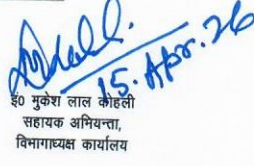 15. Apr. 26
ई० मुकेश लाल कोहली
सहायक अभियन्ता,
विभागाध्यक्ष कार्यालय